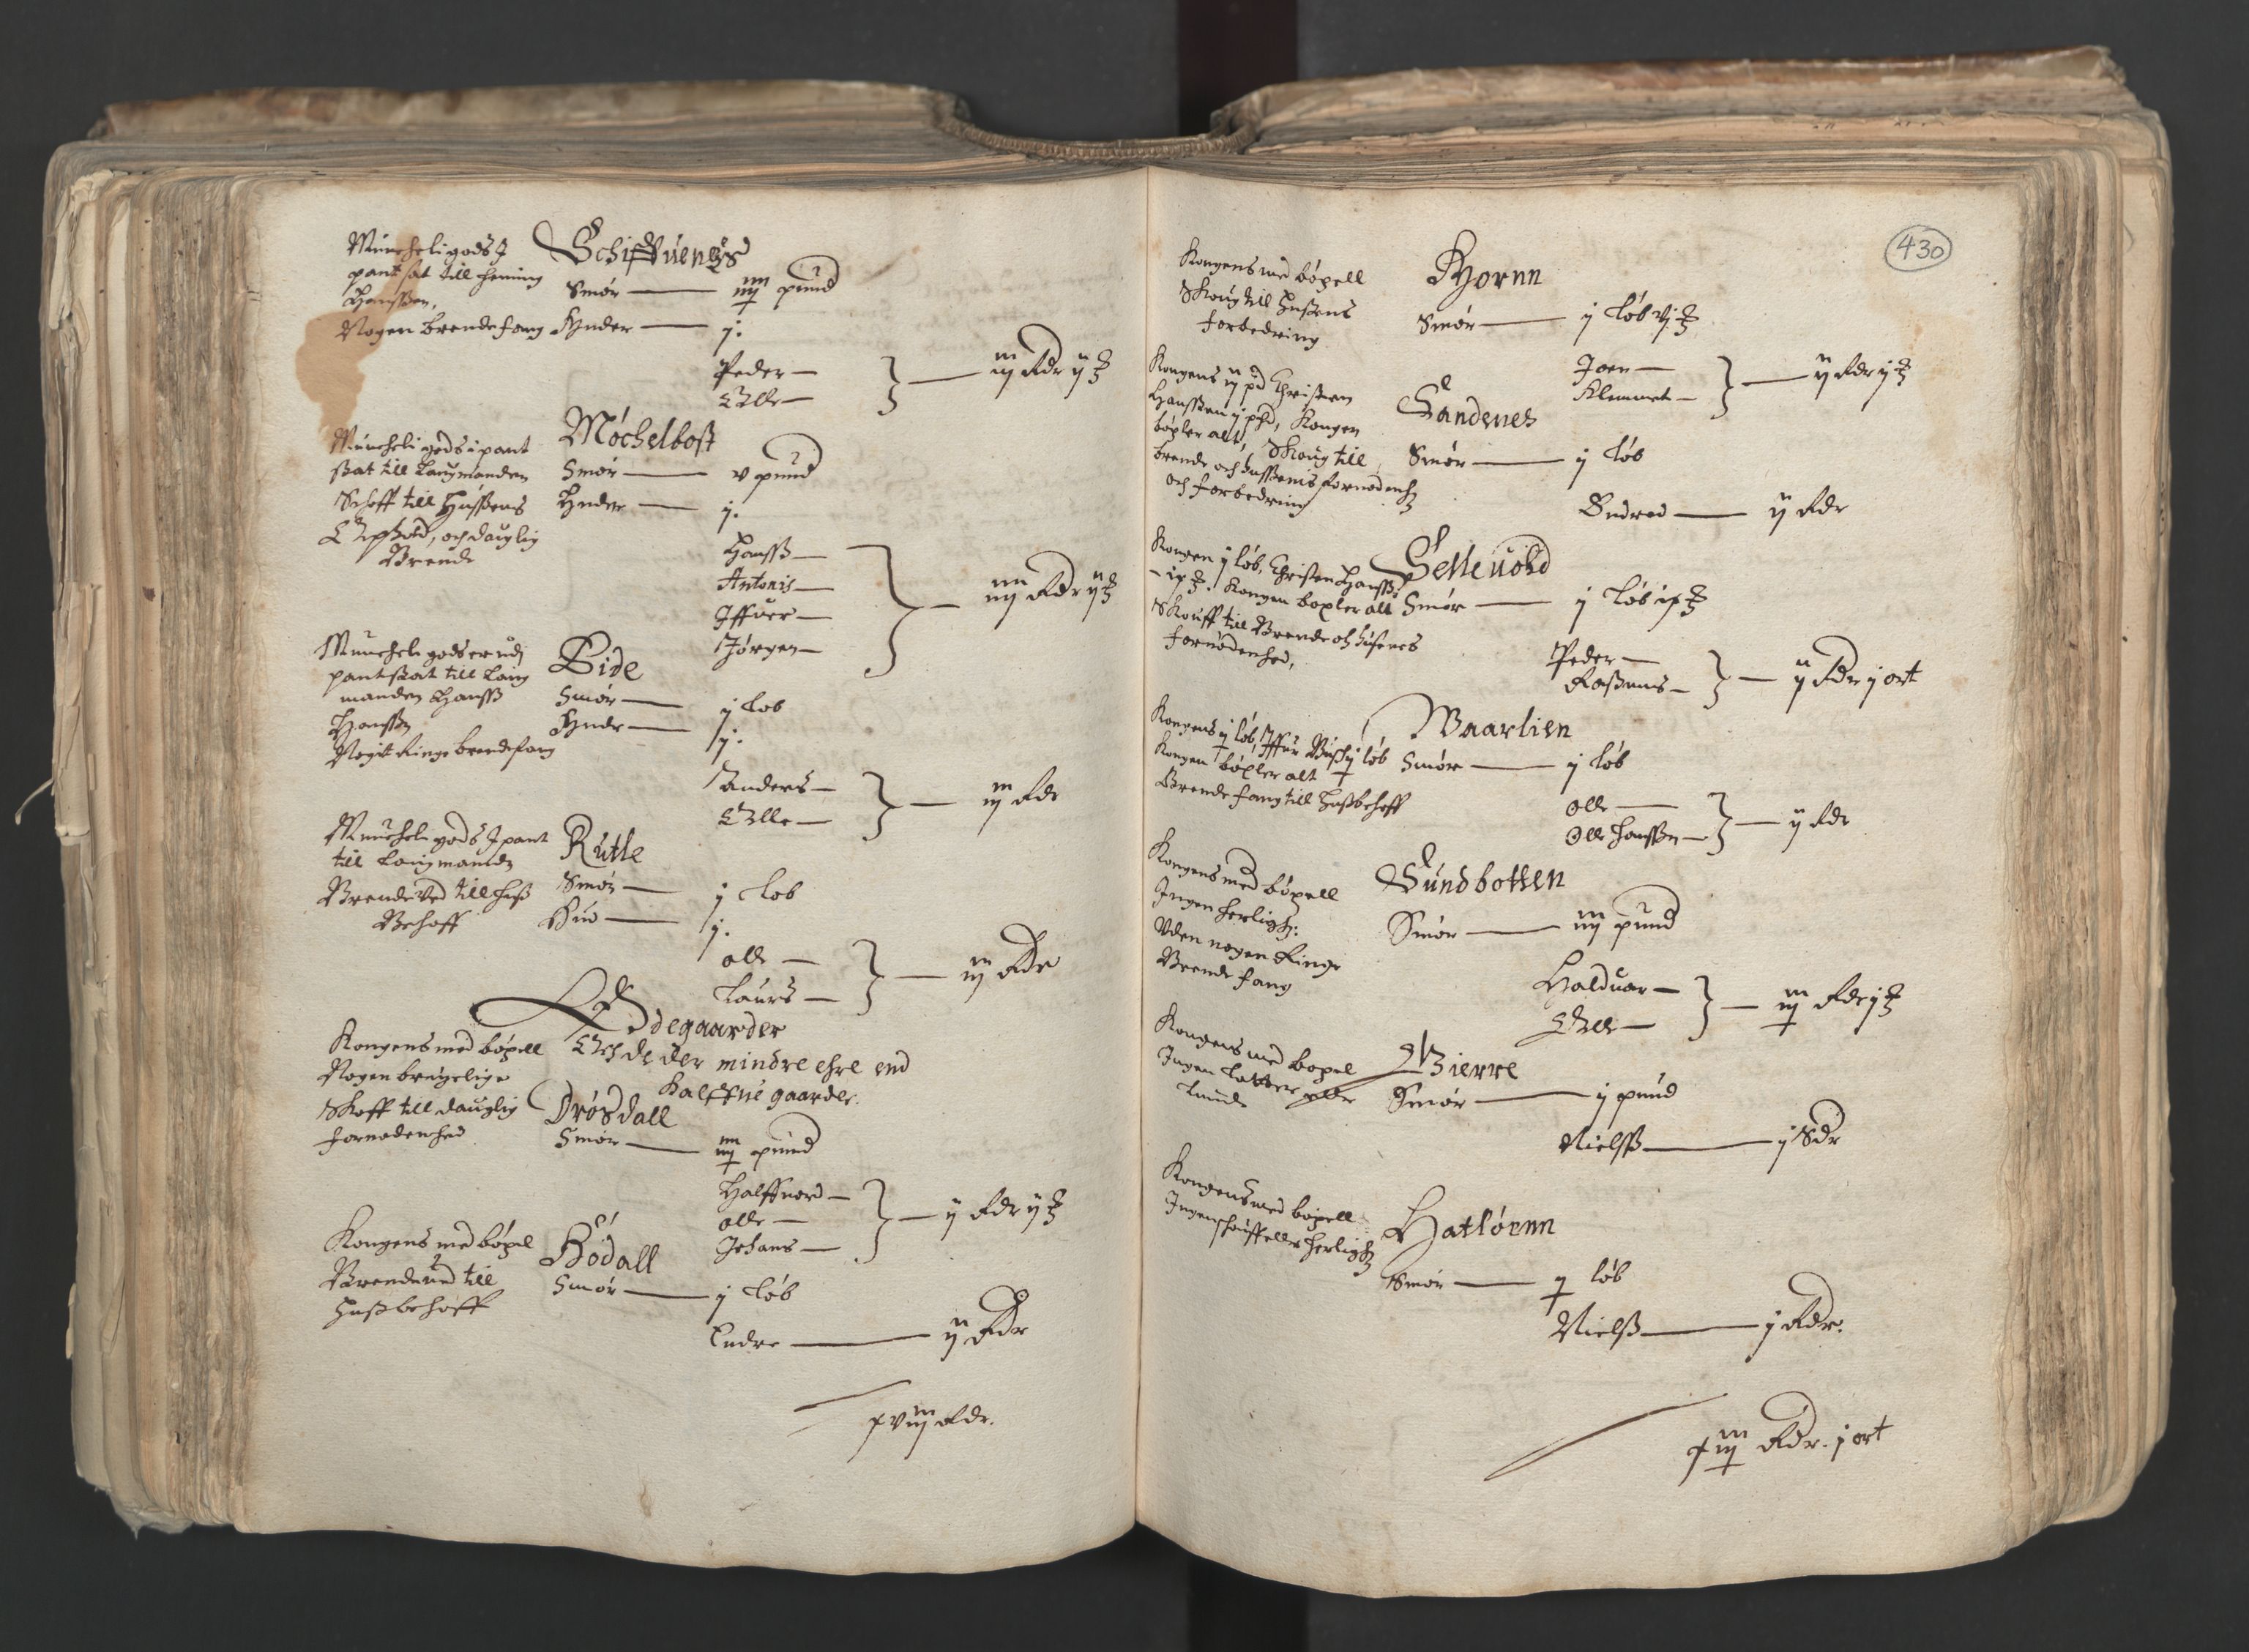 Muncheligods J
pant sat till Henning
Hanssen,
Nogen brendefang
Schiffuenes
Smør — iiij pund
Hynder — j.
Peder —
Olle —
iij Rdr ij ℥
Muncheli gods i pant
ßat till Laugmanden
Schoff till Hussens
Ophold, och dauglig
Brende
Móchelbost
Smør — v pund
Huder — j.
Hanss —
Antonis —
Iffuer —
Jørgen —
iiij Rdr ij ℥
Muncheli gods er udj
pantsat till Laug
manden Hanss
Hanssen
Nogit Ringe brendefang
Eide
Smør — j Løb
Hynder — j.
Anders —
Olle —
iij Rdr
Muncheli gods J pant
till Laugmanden
Brende Ved till Huß
Behoff
Rutle
Smør — j Løb
Hud — j.
Olle —
Laurs —
iij Rdr
Ødegaarder
Och de der mindre ehre end
halffue gaarder.
Kongens med bóxell
Nogen brugelige
Skoff till dauglig
fornødenhed
Drósdall
Smør — iiij pund
Halffuord —
Olle —
Johans —
ij Rdr ij ℥
Kongens med bóxel
Brendeved till
Hußbehoff
Bódall
Smør — j Løb
Endre — ij Rdr
xviij Rdr.
430
Kongens med bóxell
Skoug till Hußens
forbedring
Hornn
Smør — j Løb vj ℥
Joen —
Klemmet —
ij Rdr j ℥
Kongens ij pd Christen
Hanssen j pd, Kongen
bóxler alt, Skoug till
brende och Hussens fornødenh
och forbedring
Sandenes
Smør — j Løb
Endred — ij Rdr
Kongen j Løb, Christen Hanss
- ix ℥. Kongen boxler alt
Skouff till Brende och Husens
fornødenhed,
Selleuold
Smør — j Løb ix ℥
Peder —
Rasmus —
ij Rdr j ort
Kongens j løb, Iffuer Busch j løb
Kongen bóxler alt
Brende fang till Hußbehoff
Waarlien
Smør — j Løb
Olle —
Olle Hanssen —
ij Rdr
Kongens med bóxell
Ingen herligh:
Uden nogen Ringe
Brende fang
Sundbotten
Smør — iiij pund
Halduar —
Olle —
iij Rdr j ℥
Kongens med boxel
Ingen Latter eller
Lunde
Bierre
Smør — j pund
Nielss — j Rdr
Kongens med boxell
Ingen skouff eller herligh
Hatlórnn
Smør — j Løb
Nielß — j Rdr.
xiij Rdr. j ort